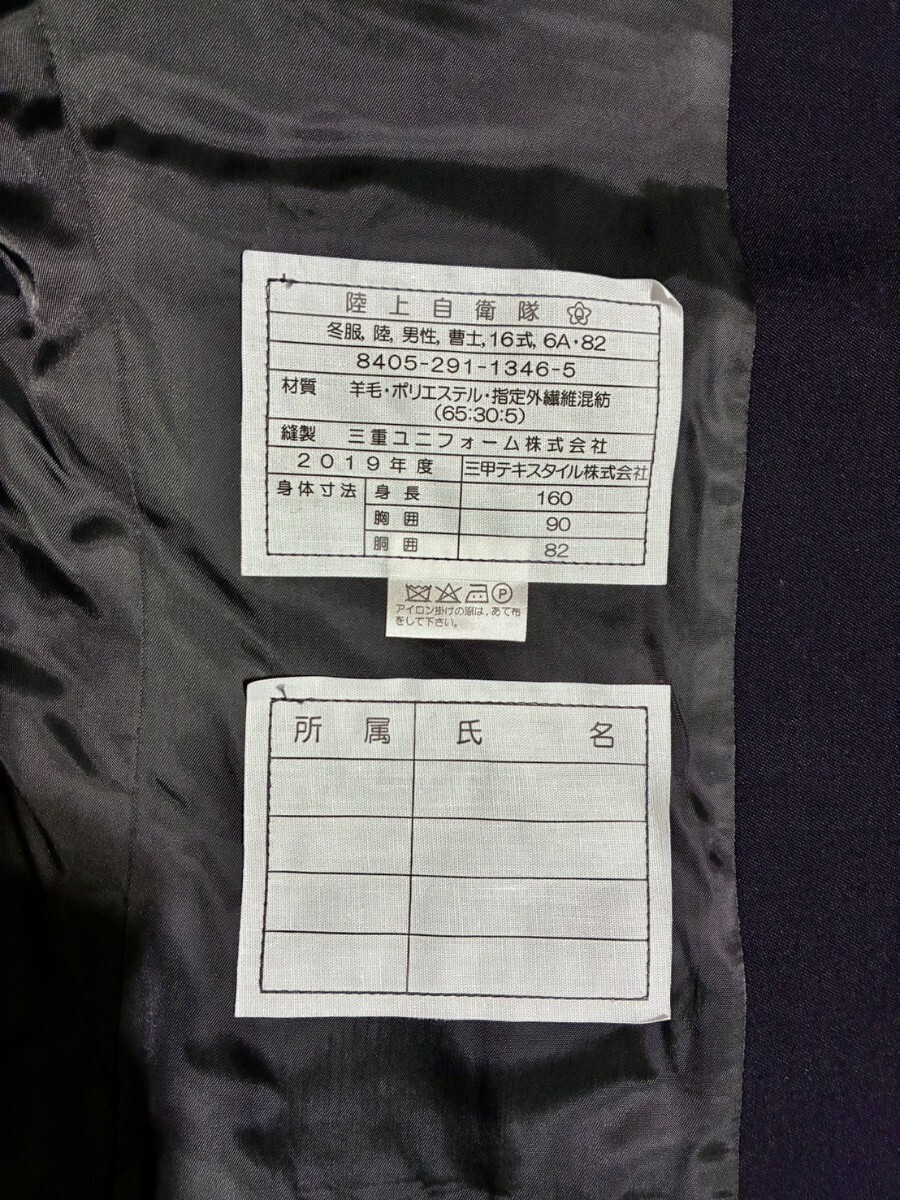 陸上自衛隊
冬服, 陸, 男性, 曹士, 16式, 6A・82
8405-291-1346-5
材質 羊毛・ポリエステル・指定外繊維混紡
(65:30:5)
縫製 三重ユニフォーム株式会社
2019年度 三甲テキスタイル株式会社
身体寸法 身長 160
胸囲 90
胴囲 82
P
アイロン掛けの際は、あて布
をして下さい。
所属 氏名